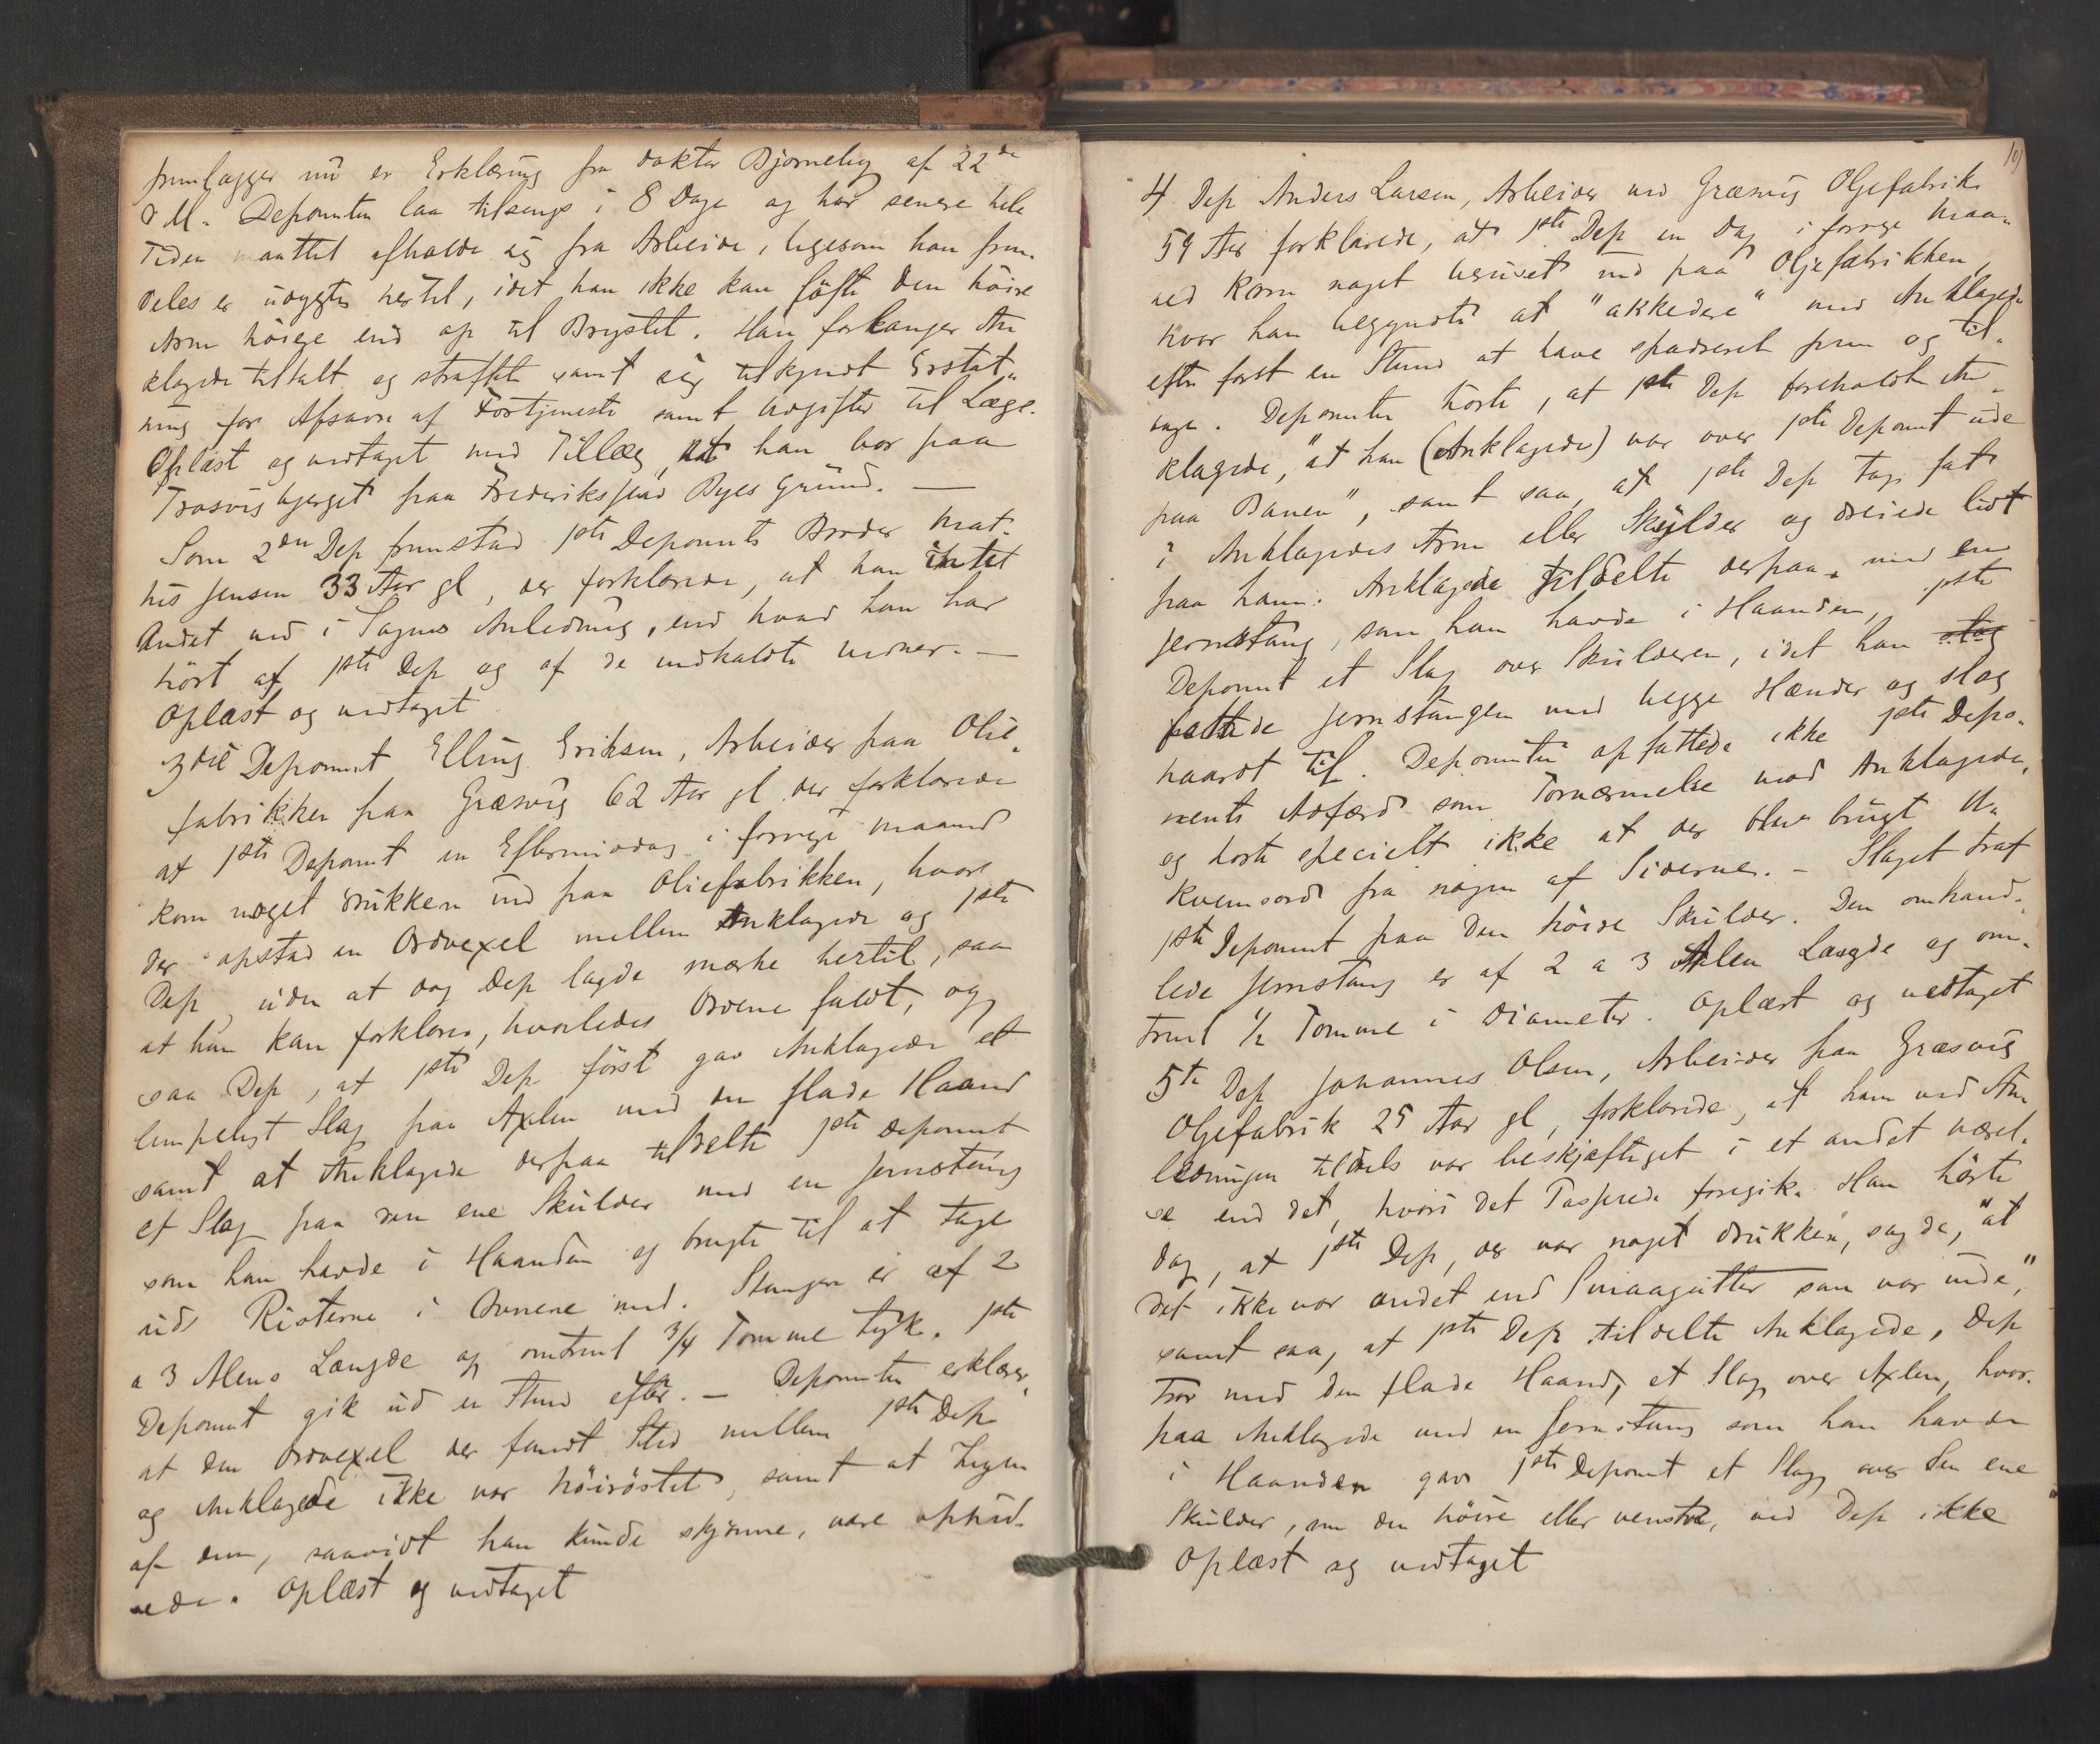 fremlægger nu en Erklæring fra doktor Bjørneby af 22de
d M. Deponenten laa tilsengs i 8 Dage og har senere hele
Tiden maattet afholde sig fra Arbeide, ligesom han frem-
deles er udygtig hertil, idet han ikke kan løfte den høire
Arm høiere end op til Brystet. Han forlanger An
klagede tiltalt og straffet samt sig tilkjendt Erstat-
ning for Afsavn af Fortjeneste samt Udgifter til Læge.
Oplæst og vedtaget med Tillæg, at han bor paa
Trosvigbjerget paa Frederikstad Byes Grund. —
Som 2den Dep fremstod 1ste Deponents Broder Mat-
his Jensen 33 Aar gl, der forklarede, at han intet
Andet ved i Sagens Anledning, end hvad han har
hørt af 1ste Dep og af de indkaldte Vidner. —
Oplæst og vedtaget
3die Deponent Elling Eriksen, Arbeider paa Olie-
fabrikken paa Græsvig 62 Aar gl der forklarede
at 1ste Deponent en Eftermiddag i forrige Maaned
kom noget drukken ind paa Oliefabrikken, hvor
der opstod en Ordvexel mellem Anklagede og 1ste
Dep, uden at dog Dep lagde mærke hertil, saa
at han kan forklare, hvorledes Ordene faldt, og
saa Dep, at 1ste Dep først gav Anklagede et
lempeligt Slag paa Axlen med den flade Haand
samt at Anklagede derpaa tildelte 1ste Deponent
et Slag paa den ene Skulder med en Jernstang
som han havde i Haanden og brugte til at tage
ud Risterne i Ovnene med. Stangen er af 2
a 3 Alens Længde og omtrent 3/4 Tomme tyk. 1ste
Deponent gik ud en Stund efter. — Deponenten erklærer,
at den Ordvexel der fandt Sted mellem 1ste Dep
og Anklagede ikke var høirøstet, samt at Ingen
af dem, saavidt han kunde skjønne, vare ophid-
sede. Oplæst og vedtaget
4 Dep Anders Larsen, Arbeider ved Græsvig Oljefabrik
59 Aar forklarede, at 1ste Dep en Dag i forrige Maa-
ned kom noget beruset ind paa Oljefabrikken,
hvor han begyndte at "akkedere" med Anklagede
efter først en Stund at have spadseret frem og til-
bage. Deponenten hørte, at 1ste Dep foreholdt An-
klagede, "at han (Anklagede) var over 1ste Deponent ude
paa Banen", samt saa, at 1ste Dep tog fat
i Anklagedes Arm eller Skulder og dreiede lidt
paa ham. Anklagede tildelte derpaa med en
Jernstang, som han havde i Haanden, 1ste
Deponent et Slag over Skulderen, idet han slog
fattede Jernstangen med begge Hænder og slog
haardt til. Deponenten opfattede ikke 1ste Depo-
nents Adfærd som Fornærmelse mod Anklagede,
og hørte specielt ikke at der blev brugt U-
kvemsord fra nogen af Siderne. – Slaget traf
1ste Deponent paa den høire Skulder. Den omhand-
lede Jernstang er af 2 a 3 Alen Længde og om-
trent 1/2 Tomme i Diameter. Oplæst og vedtaget
5te Dep Johannes Olsen, Arbeider paa Græsvig
Oljefabrik 25 Aar gl, forklarede, at han ved An
ledningen tildels var beskjæftiget i et andet Værel-
se end det, hvori det Passerede foregik. Han hørte
dog, at 1ste Dep, der var noget drukken, sagde, "at
det ikke var andet end Smaagutter som var inde",
samt saa, at 1ste Dep tildelte Anklagede, Dep
tror med den flade Haand, et Slag over Axlen, hvor-
paa Anklagede med en Jernstang som han havde
i Haanden gav 1ste Deponent et Slag over den ene
Skulder, om den høire eller venstre, ved Dep ikke
Oplæst og vedtaget